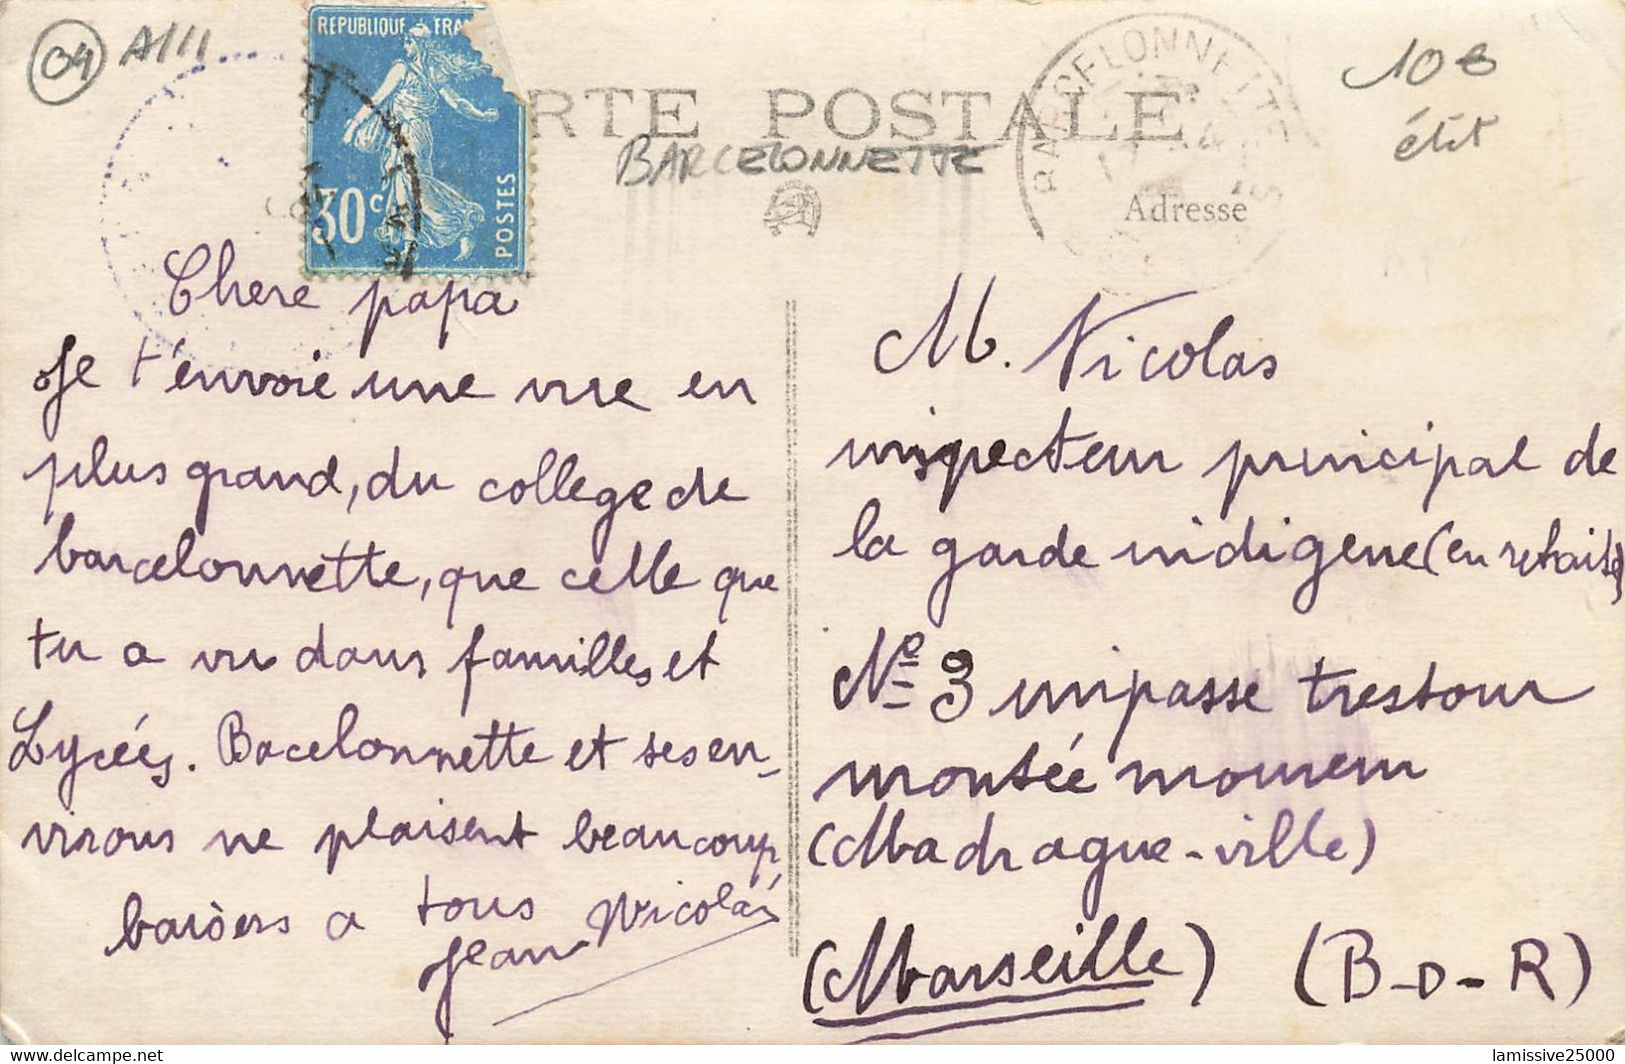 04 A/11
REPUBLIQUE FRA
30c
POSTES
RTE POSTALE
BARCELONNETTE
BARCELONNETTE
Adresse
Chere papa
Je t'envoie une vue en
plus grand, du college de
barcelonnette, que celle que
tu a vu dans familles et
Lycées. Bacelonnette et ses en-
virons me plaisent beaucoup
baisers a tous
Jean Nicolas
M. Nicolas
inspecteur principal de
la garde indigene (en retaite)
No 3 impasse trestour
montée mourem
(Madrague-ville)
(Marseille) (B-D-R)
delcampe.net
lamissive25000